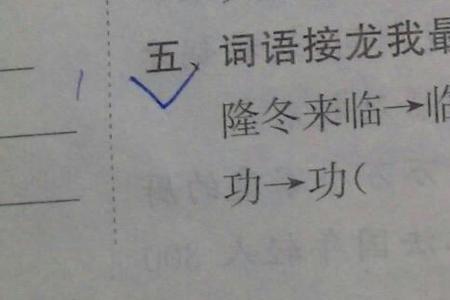 五、词语接龙我最
隆冬来临→临
功→功(